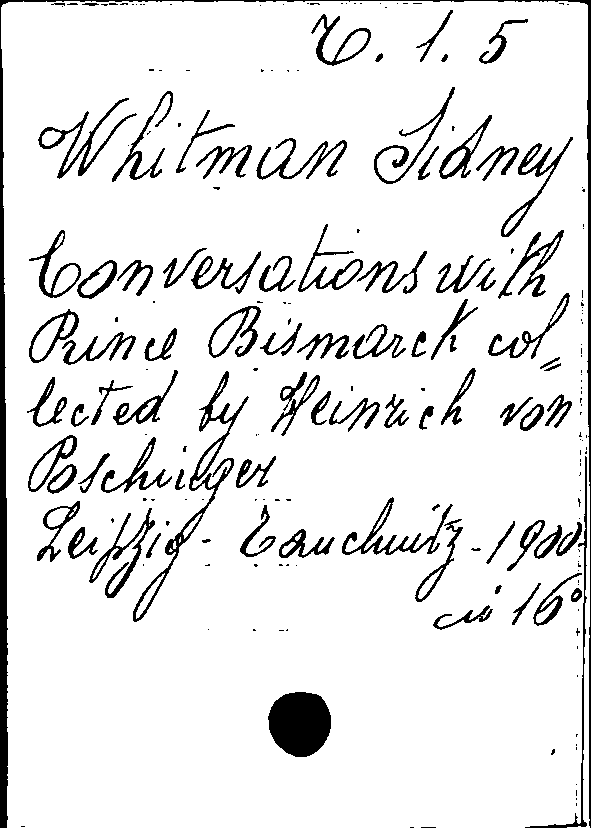 C. 1. 5
Whitman Sidney
Conversations with
Prince Bismarck col=
lected by Heinrich von
Poschinger
Leipzig - Tauchnitz - 1900
in 16°